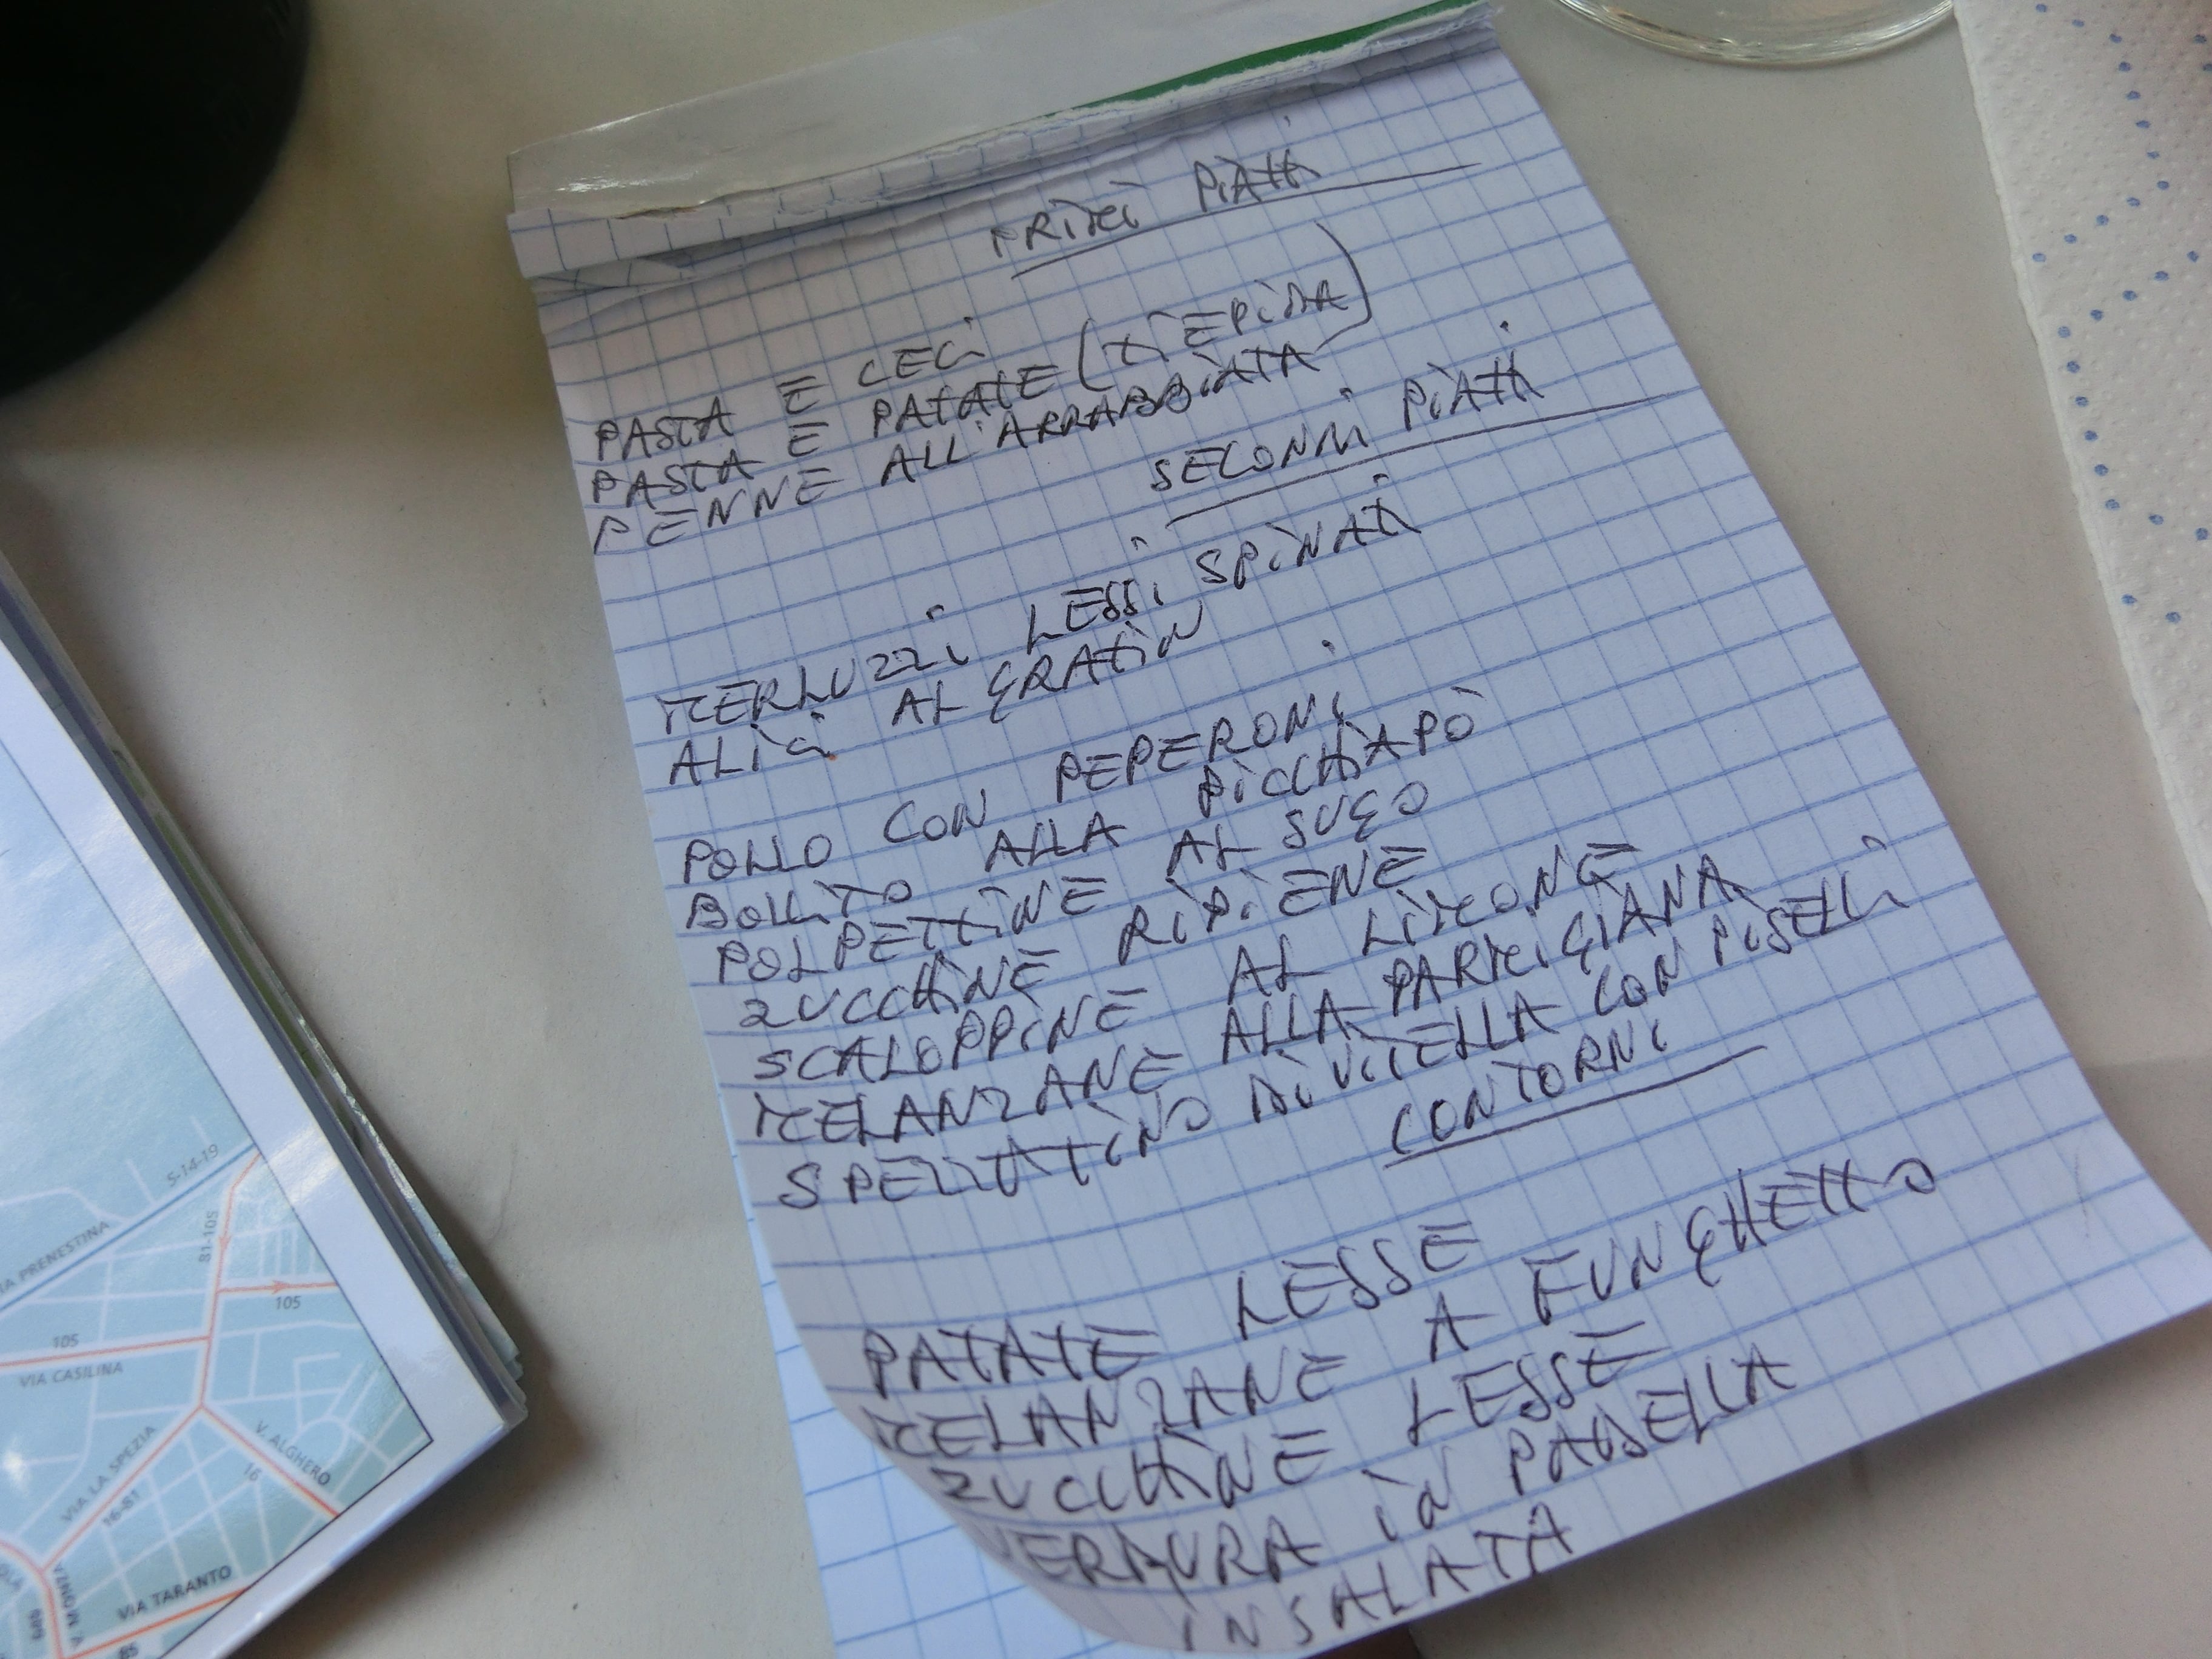 PRIMI PIATTI
PASTA E CECI
PASTA E PATATE (TIEPIDA)
PENNE ALL'ARRABBIATA
SECONDI PIATTI
MERLUZZI LESSI SPINATI
ALICI AL GRATIN
POLLO CON PEPERONI
BOLLITO ALLA PICCHIAPÒ
POLPETTINE AL SUGO
ZUCCHINE RIPIENE
SCALOPPINE AL LIMONE
MELANZANE ALLA PARMIGIANA
SPEZZATINO DI VITELLA CON PISELLI
CONTORNI
PATATE LESSE
MELANZANE A FUNGHETTO
ZUCCHINE LESSE
VERDURA IN PADELLA
INSALATA
S-14-19
VIA PRENESTINA
81-105
105
105
VIA CASILINA
VIA LA SPEZIA
16-81
V. ALGHERO
16
V. MONZA
VIA TARANTO
85